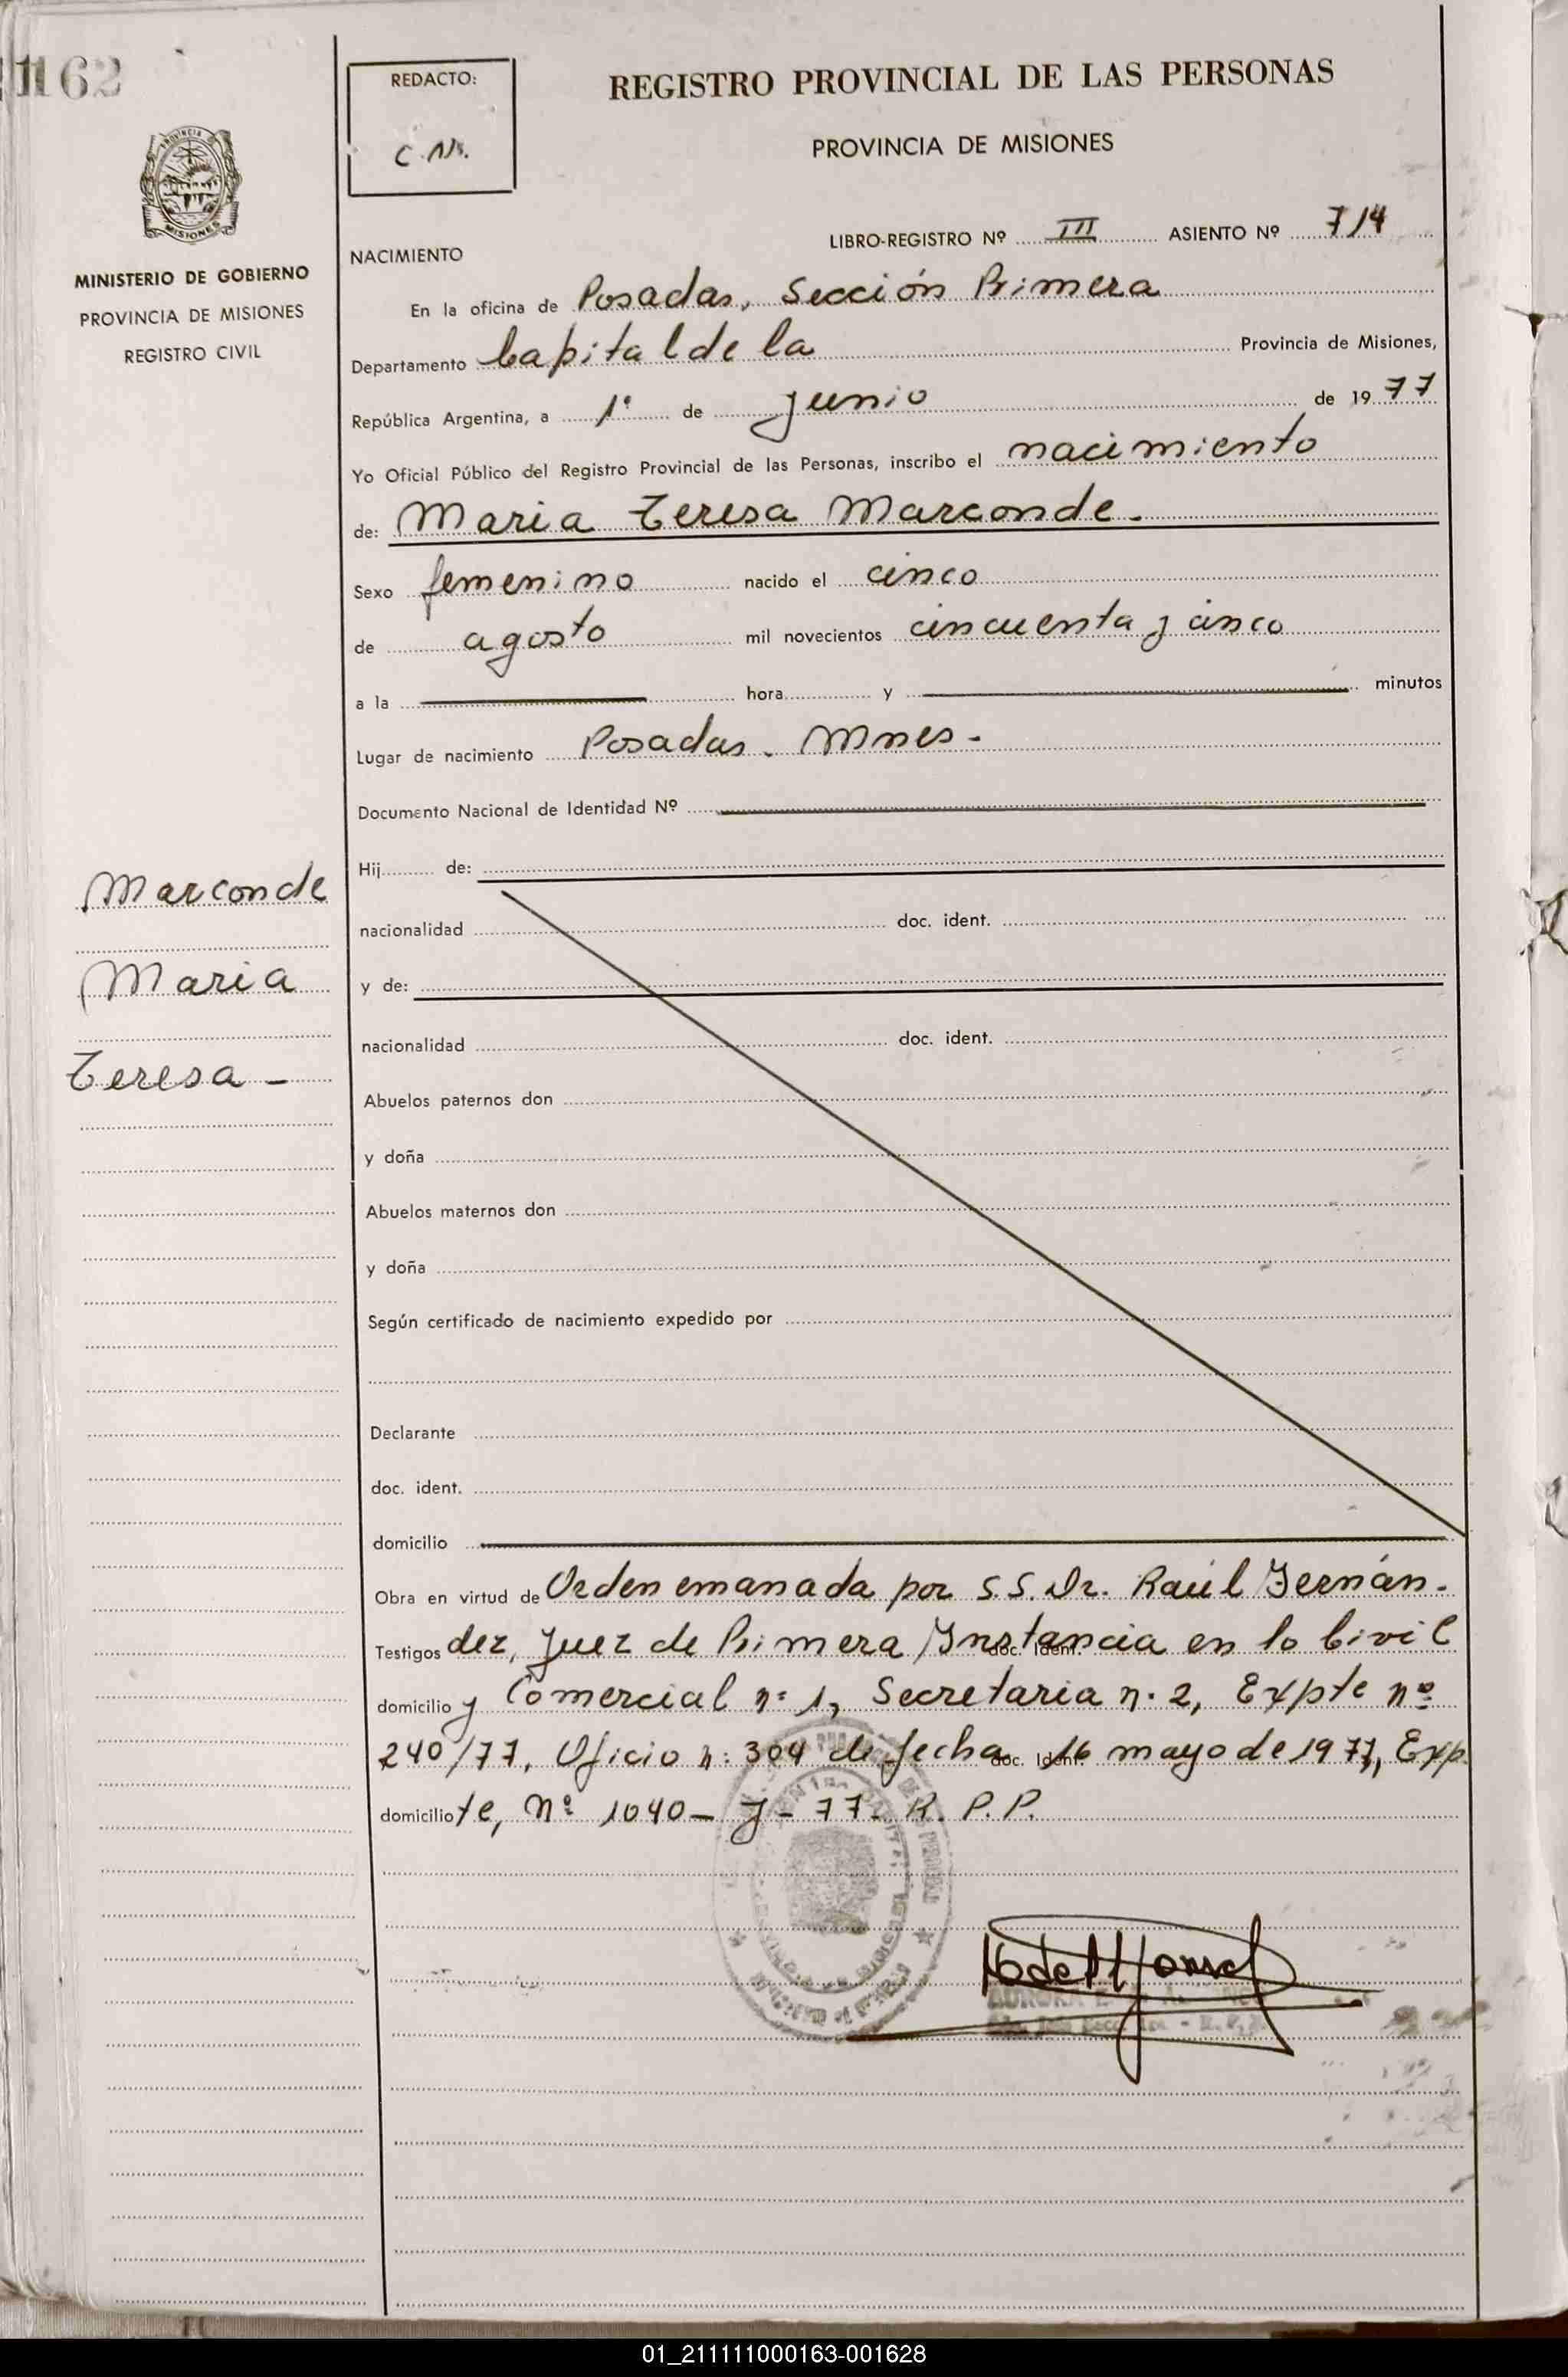 1162
REDACTO:
REGISTRO PROVINCIAL DE LAS PERSONAS
PROVINCIA DE MISIONES
MISIONES
MINISTERIO DE GOBIERNO
PROVINCIA DE MISIONES
REGISTRO CIVIL
LIBRO-REGISTRO Nº III ASIENTO Nº 714
NACIMIENTO
En la oficina de Posadas, Sección Primera
Departamento Capital de la Provincia de Misiones,
República Argentina, a 1º de junio de 1977
Yo Oficial Público del Registro Provincial de las Personas, inscribo el nacimiento
de: Maria Teresa Marconde.
Sexo femenino nacido el cinco
de agosto mil novecientos cincuenta y cinco
a la hora y minutos
Lugar de nacimiento Posadas. Mnes-
Documento Nacional de Identidad Nº
Hij de:
Marconde
nacionalidad doc. ident.
Maria
y de:
nacionalidad doc. ident.
Teresa-
Abuelos paternos don
y doña
Abuelos maternos don
y doña
Según certificado de nacimiento expedido por
Declarante
doc. ident.
domicilio
Obra en virtud de Orden emanada por S.S. Dr. Raúl Fernán-
Testigos dez, Juez de Primera Instancia en lo Civil doc. Ident.
domicilio y Comercial nº 1, Secretaria n. 2, Expte nº
240/77, Oficio n: 304 de fecha 16 mayo de 1977, Exp doc. Ident.
domicilio te, Nº 1040- J- 77- R. P. P.
01_211111000163-001628